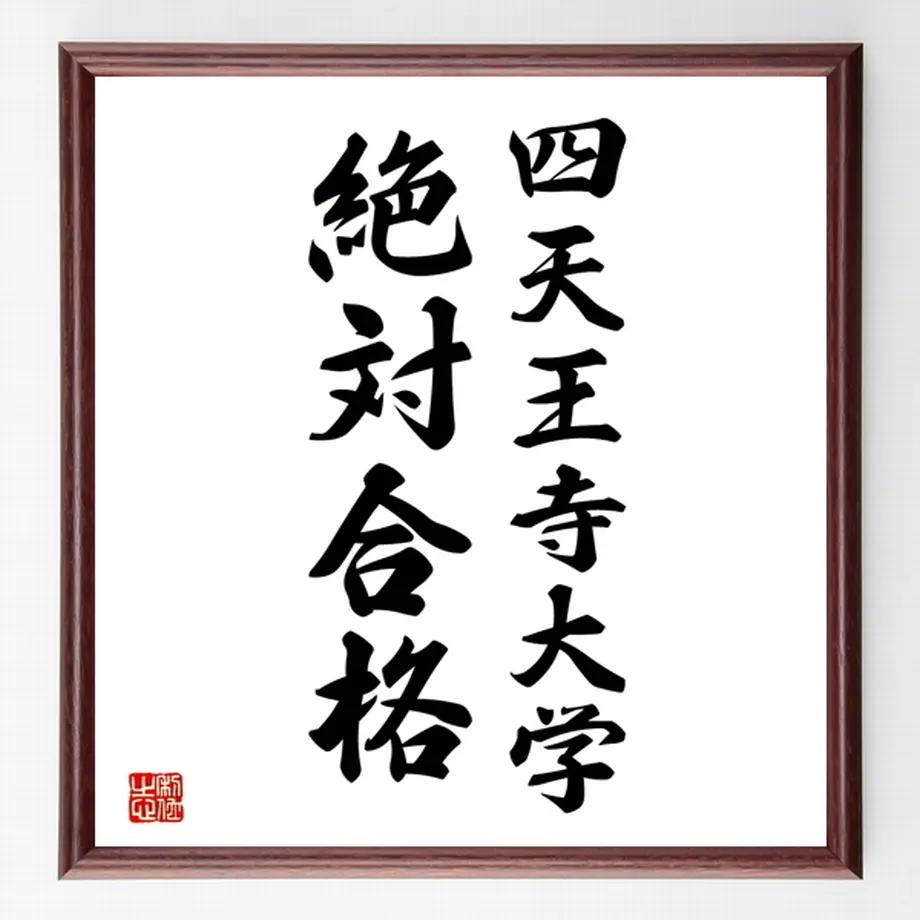 四天王寺大学
絶対合格